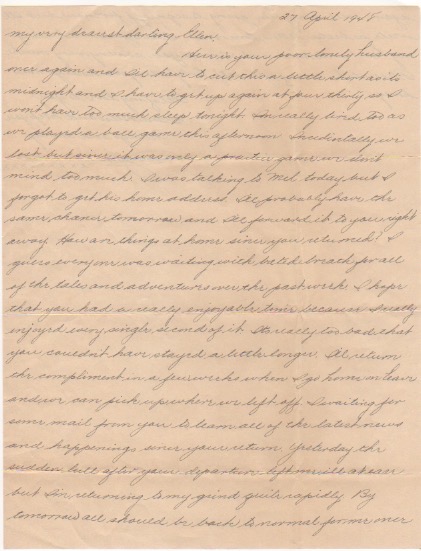 27 April 1948
My very dearest darling Ellen,
Here is your poor lonely husband
once again and I'll have to cut this a little short as its
midnight and I have to get up again at four thirty so I
won't have too much sleep tonight. I'm really tired too as
we played a ball game this afternoon. Incidentally we
lost but since it was only a practice game we didn't
mind too much. I was talking to Mel today but I
forgot to get his home address. I'll probably have the
same chance tomorrow and I'll forward it to you right
away. How are things at home since you returned? I
guess everyone was waiting with bated breath for all
of the tales and adventures over the past week. I hope
that you had a really enjoyable time because I really
enjoyed every single second of it. Its really too bad that
you couldn't have stayed a little longer. I'll return
the compliment in a few weeks when I go home on leave
and we can pick up where we left off. I waiting for
some mail from you to learn all of the latest news
and happenings since your return. Yesterday the
sudden lull after your departure left me ill at ease
but I'm returning to my grind quite rapidly. By
tomorrow all should be back to normal for me once